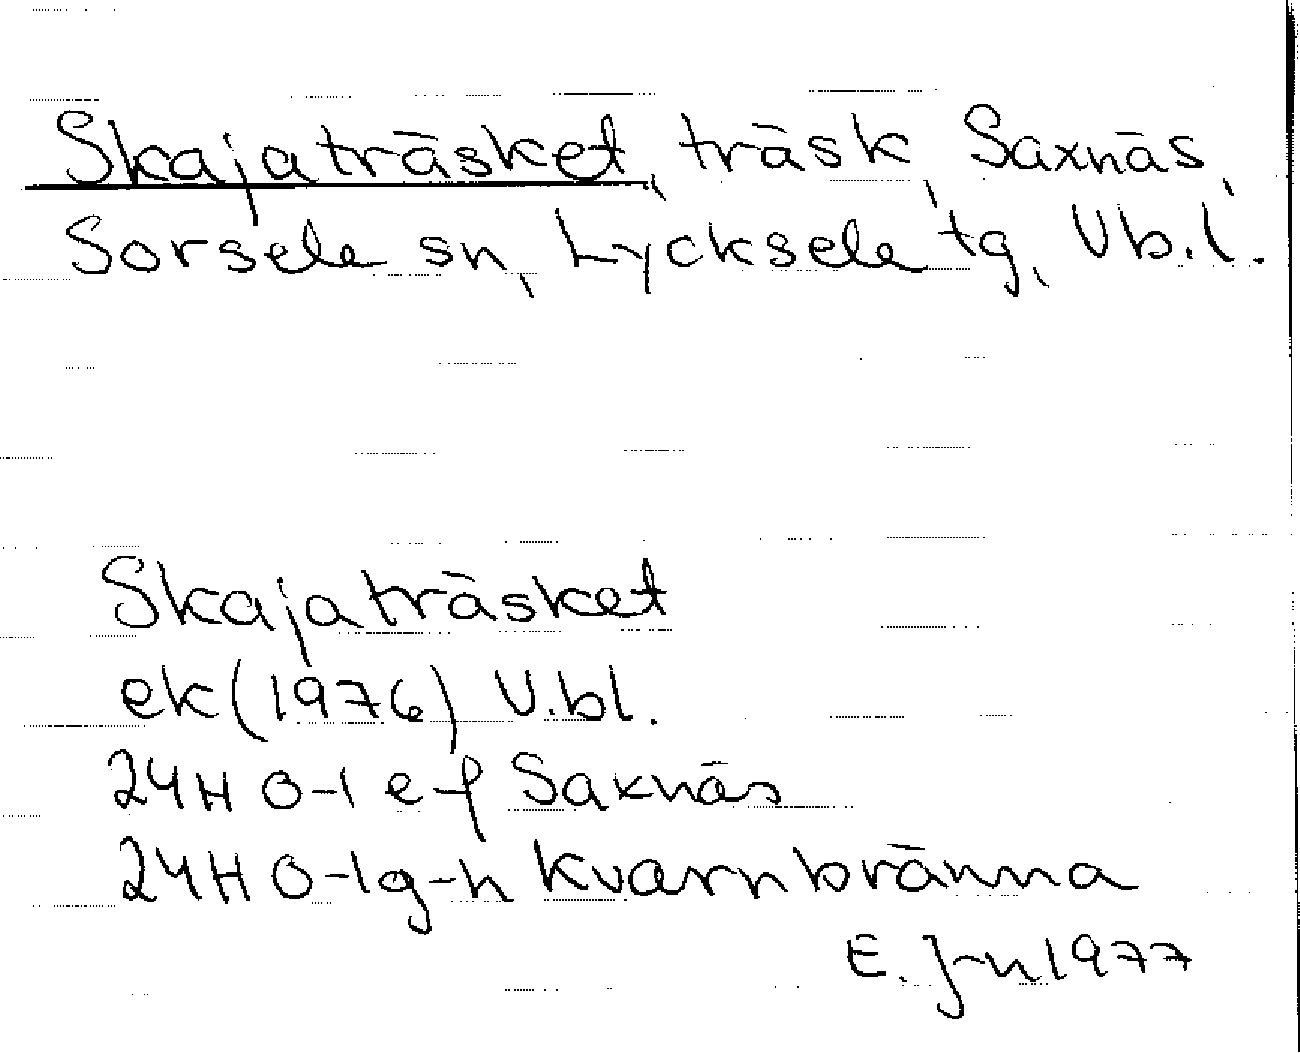 Skajaträsket, träsk, Saxnäs,
Sorsele sn, Lycksele tg, Vb.l.
Skajaträsket
ek(1976) V.bl.
24H 0-1 e-f Saxnäs
24H 0-1g-h Kvarnbränna
E. J-n 1977